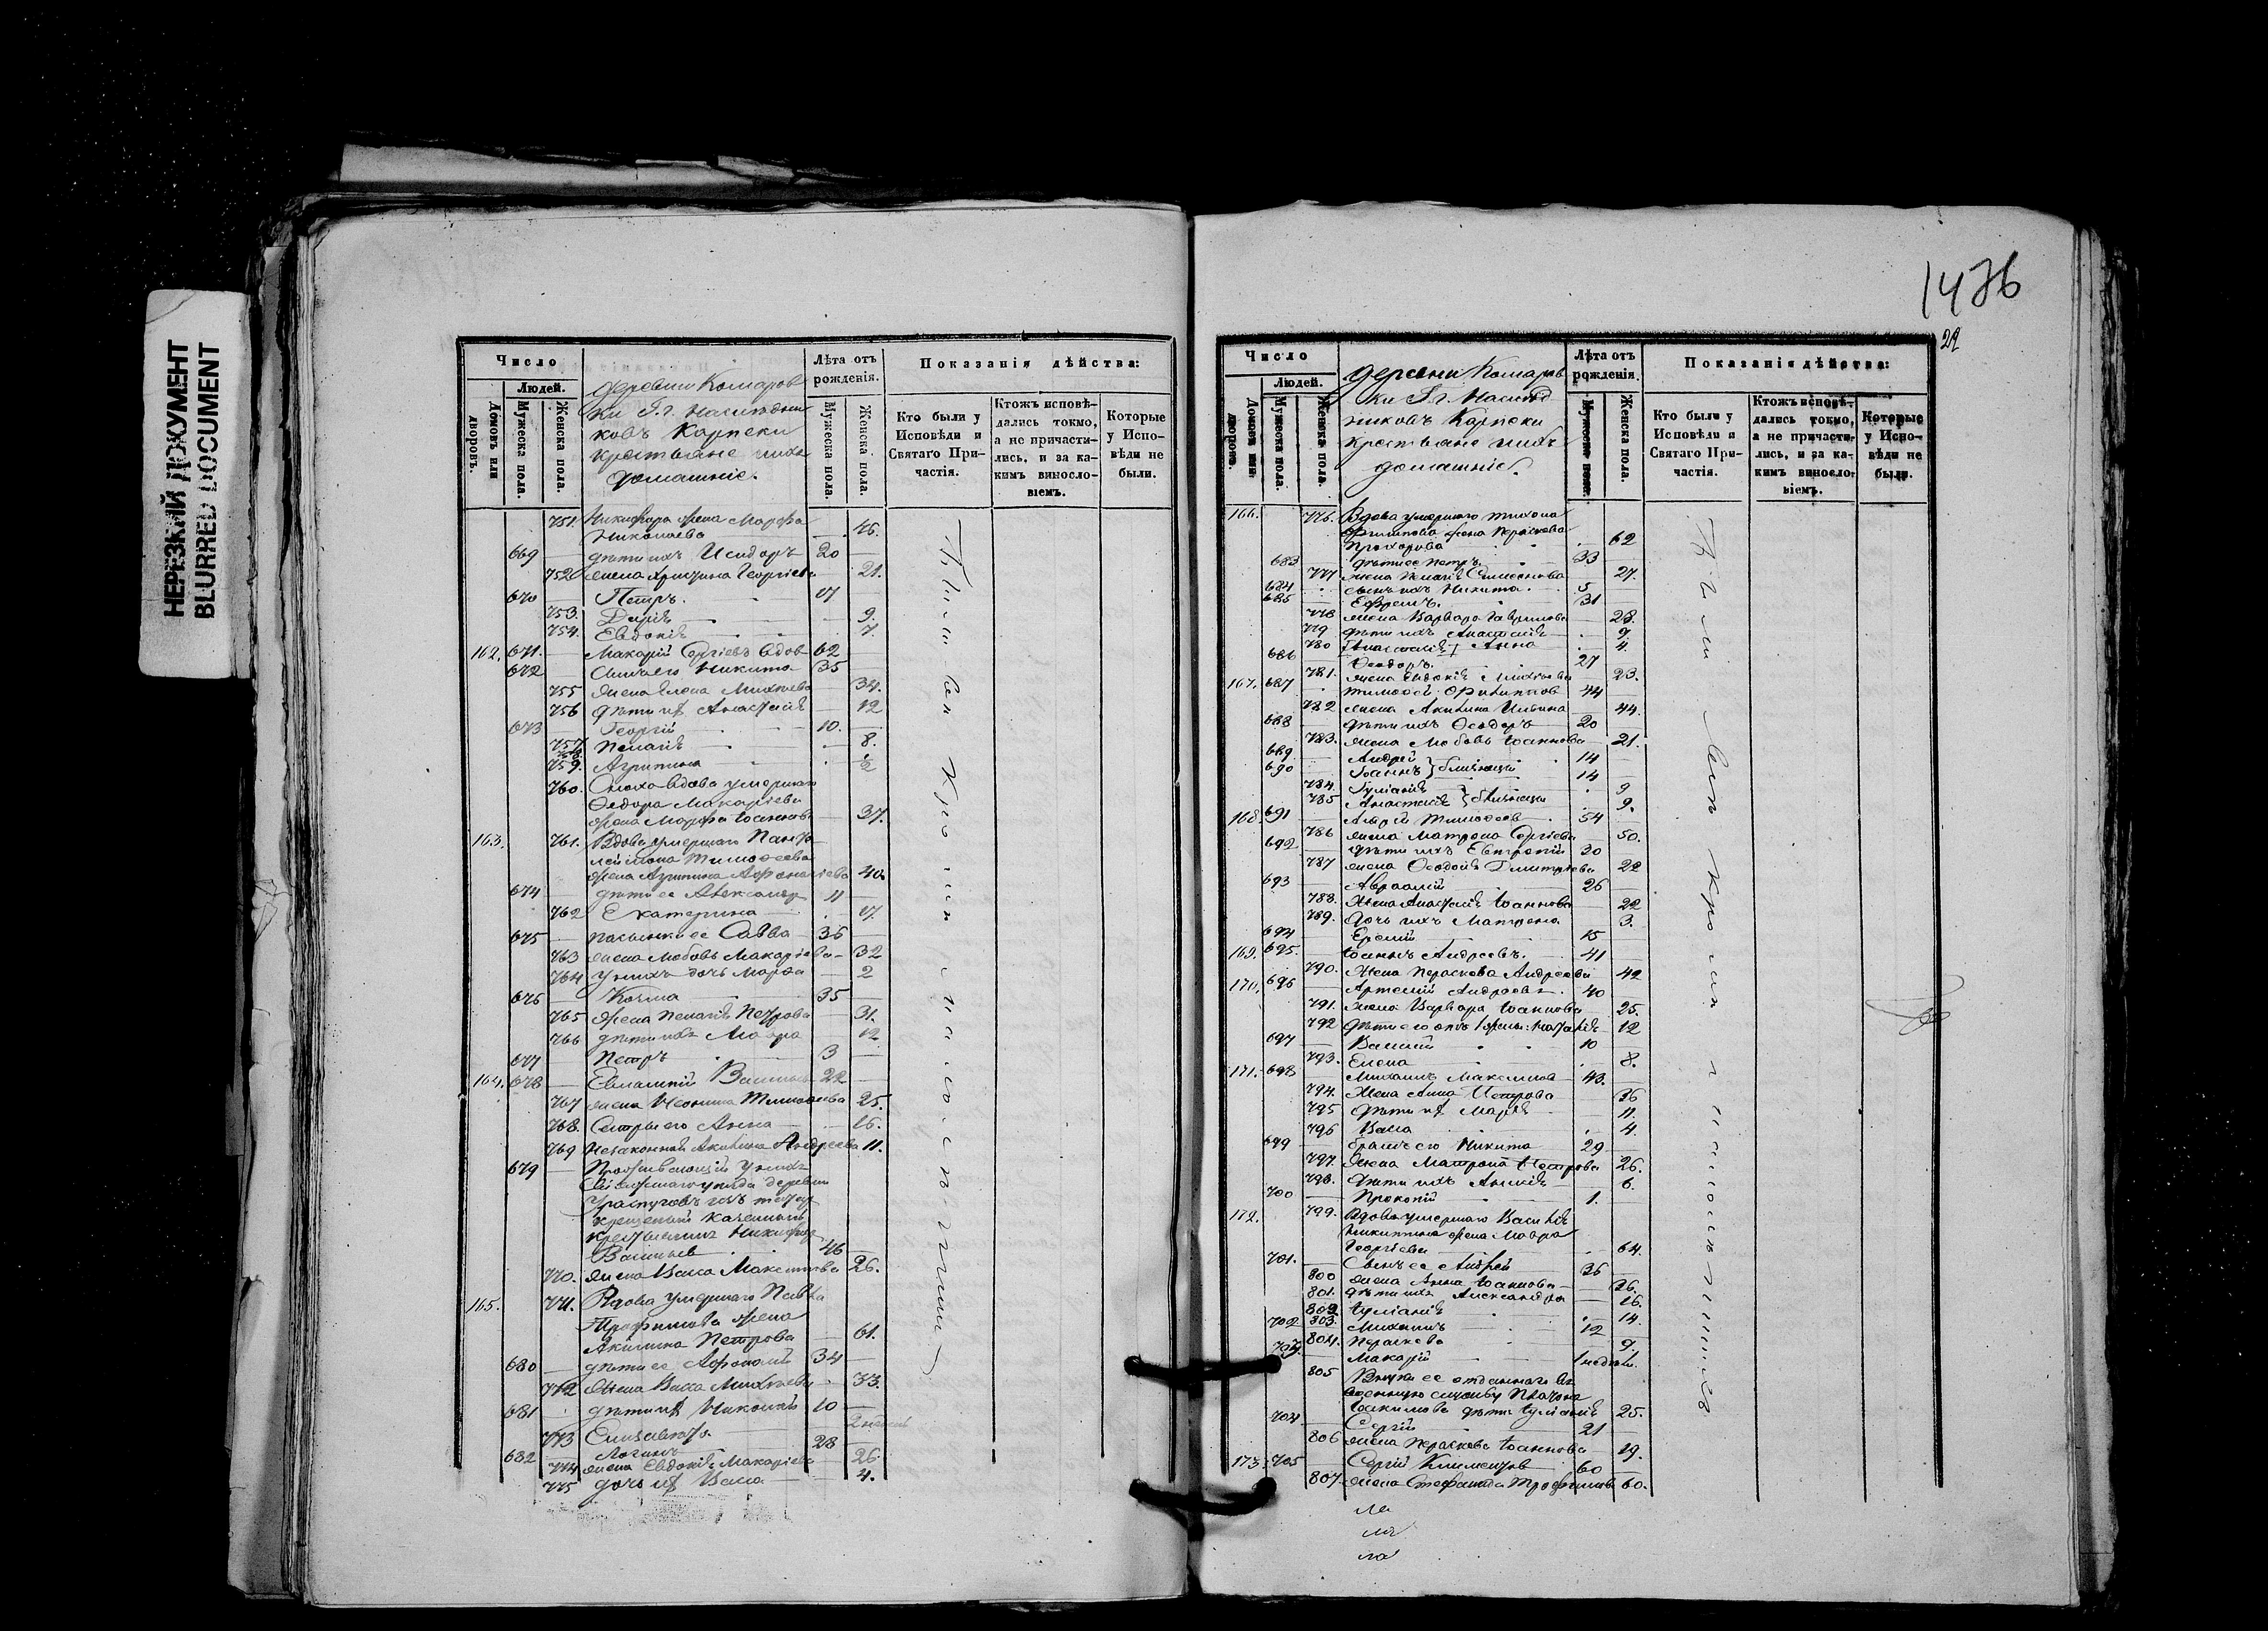 НЕРЕЗКИЙ ДОКУМЕНТ
BLURRED DOCUMENT
1476
29
Число
Людей.
Домовъ или дворовъ.
Мужеска пола.
Женска пола.
деревни Комаров
ки Г.г. Наслѣдни
ковъ Карпеки
крестьяне ихъ
домашніе.
Лѣта отъ рожденія.
Мужеска пола.
Женска пола.
Показанія дѣйства:
Кто были у Исповѣди и Святаго Причастія.
Ктожъ исповѣдались токмо, а не причастились, и за какимъ винословіемъ.
Которые у Исповѣди не были.
751. Никифора жена Марфа
Николаева 46.
669 дѣти ихъ Исидоръ 20
752 жена Христина Георгіева 21.
670 Петръ. 17
753. Дарія 9.
754. Евдокія 7.
162. 671. Макарій Сергіевъ вдов 62
672 Сынъ его Никита 35
755 жена Елена Михѣева 34.
756 дѣти их Анастасія 12
673 Георгій 10.
757 Пелагія 8.
759. Агрипина 2
760. Сноха вдова умершаго
Ѳедора Макаріева
жена Марфа Іоаннова 37.
163. 761. Вдова умершаго Панте
леймона Тимоѳеева
жена Агрипина Афанасіева 40.
674 дѣти ее Александр 11
762 Екатерина 17.
675 пасынки ее Савва 36
763 жена Любовь Макаріева 32
764 у нихъ дочь Марфа 2
676 Козма 35
765 жена Пелагія Петрова 31.
766 дѣти ихъ Мавра 12
677 Петръ 3
164. 678 Евлампій Васильев 22
767 жена Неонила Тимоѳеева 25.
768. Сестры его Анна 16.
769 Незаконная Акилина Андреева 11.
679 Проживающій у нихъ
уѣзда деревни
крещеный казенный
крестьянинъ Никифор
Васильев 46
770. жена Васса Максимова 26.
165. 771. Вдова умершаго Павла
Трофимова жена
Акилина Петрова 61.
680 дѣти ее Афанасій 34
772 жена Васса Михѣева 33.
681 дѣти их Николай 10
773 Елизавета 2 недѣли
682 Логинъ 28
774 жена Евдокія Макаріева 26.
775 дочь их Васса 4.
Число
Людей.
Домовъ или дворовъ.
Мужеска пола.
Женска пола.
деревни Комаров
ки Г.г. Наслѣд
никовъ Карпеки
крестьяне ихъ
домашніе.
Лѣта отъ рожденія.
Мужеска пола.
Женска пола.
Показанія дѣйства:
Кто были у Исповѣди и Святаго Причастія.
Ктожъ исповѣдались токмо, а не причастились, и за какимъ винословіемъ.
Которые у Исповѣди не были.
166. 776. Вдова умершаго Тихона
Филиппова жена Параскева
Прохорова 62
683 дѣти ее Петръ 33
777 жена Пелагія Симеонова 27.
684 сынъ ихъ Никита. 5
685 Ефремъ. 31
778 жена Варвара Гаврилова 28.
779 дѣти ихъ Анастасія 7.
780 Анна 4.
686 Ѳеодоръ. 27
781. жена Евдокія Михѣева 23.
167. 687 Тимоѳей Филиппов 44
782 жена Акилина Ильина 44.
688 дѣти ихъ Ѳеодоръ 20
783. жена Любовь Іоаннова 21.
689 Андрей 14
690 Іоаннъ } близнецы 14
784. Іуліанія 9
785 Анастасія } близнецы 9.
168. 691 Андрей Тимоѳеев 54
786 жена Матрона Сергіева 50.
692 дѣти ихъ Евтропій 30
787 жена Ѳеодосія Дмитріева 22
693 Авраамій 26
788. жена Анастасія Іоаннова 22
789. Дочь ихъ Матрона 3.
694 Еремій 15
169. 695. Іоаннъ Андреевъ. 41
790. Жена Параскева Андреева 42
170. 696 Артемій Андреевъ 40
791. жена Варвара Іоаннова 25.
792 дѣти его отъ 1 жены: Наталія 12
697 Василій 10
793. Елена 8.
171. 698 Михаилъ Максимов 43.
794. Жена Анна Петрова 36
795 дѣти их Марія 11.
796 Васса 4.
699 братъ его Никита 29
797. Жена Матрона Петрова 26.
798. дѣти ихъ 6.
700 Прокопій 1.
172. 799. Вдова умершаго Василія
Никитина жена Мавра
Георгіева 64.
701. Сынъ ее Андрей 36
800 жена Анна Іоаннова 36.
801. дѣти ихъ Александра 16.
802. Іуліанія 14.
702 803. Михаилъ 12
804. Параскева 9.
703. Макарій 1 недѣли.
805 Внуки ее отданнаго въ
военную службу Платона
Іоакимова дѣти Іуліанія 25.
704 Сергій 21
806 жена Параскева Іоаннова 19.
173. 705 Сергій Климентов 60
807. жена Стефанида Трофимова 60.
ла